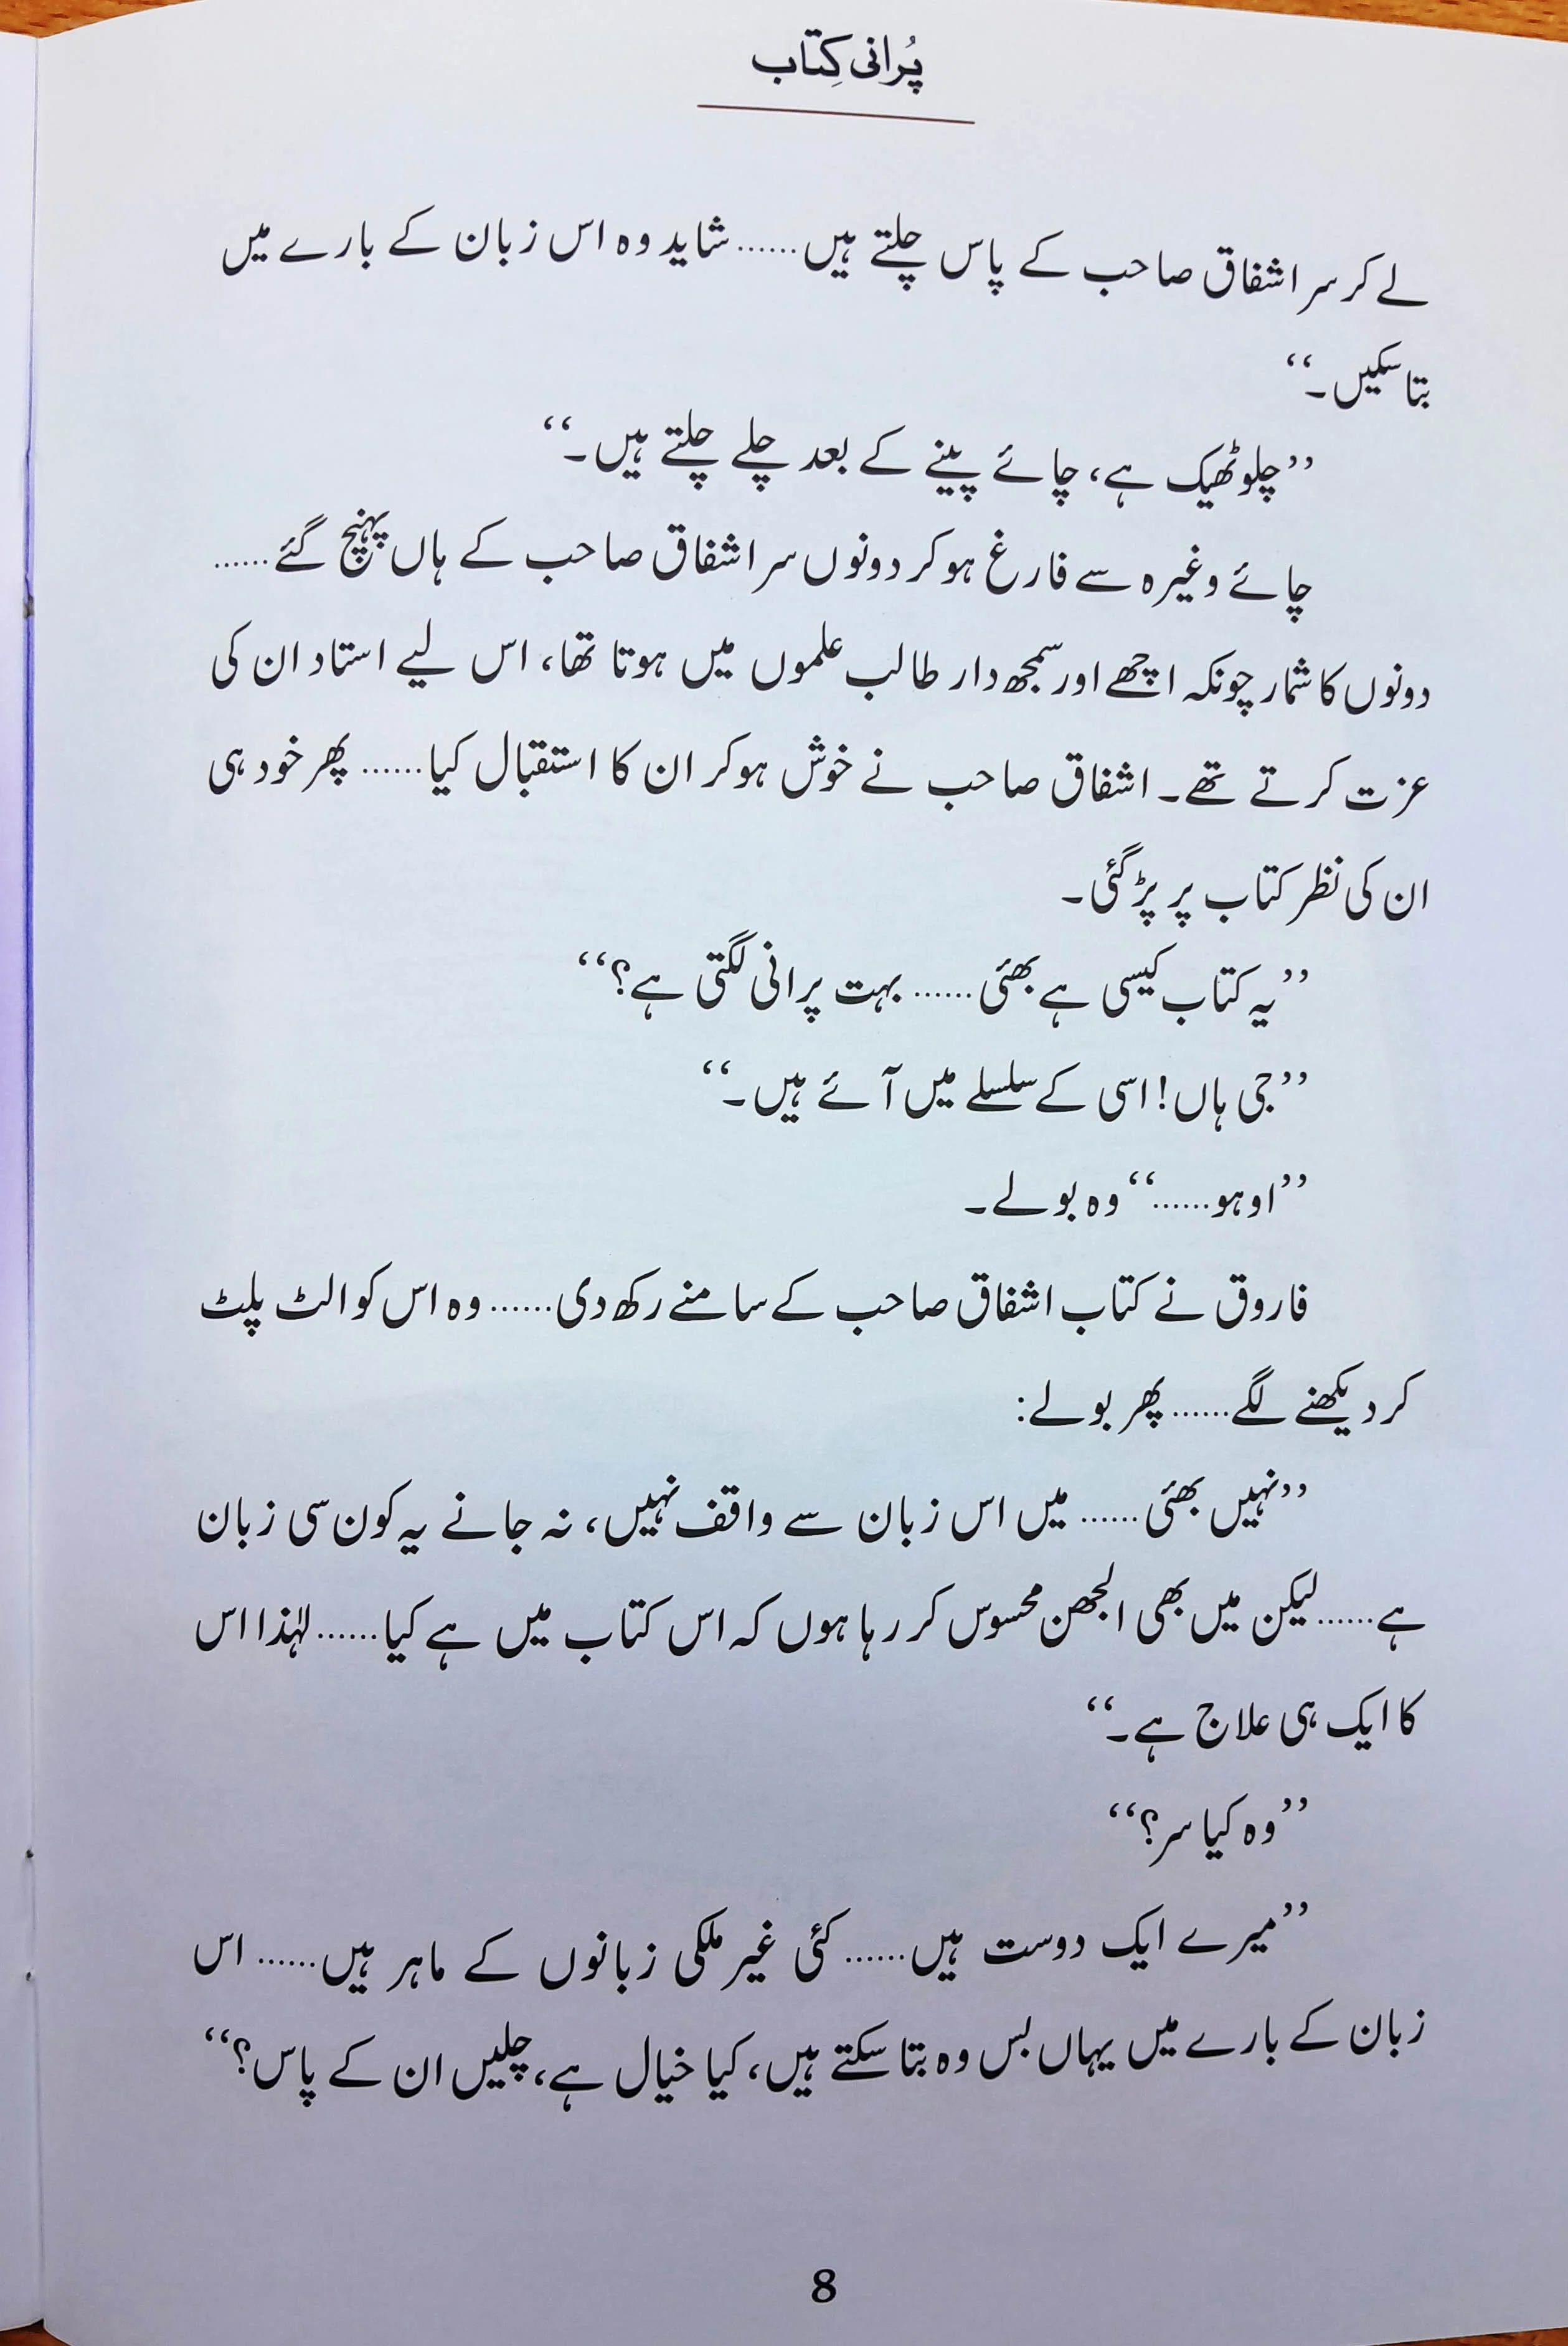 پُرانی کِتاب
لے کر سر اشفاق صاحب کے پاس چلتے ہیں...... شاید وہ اس زبان کے بارے میں
بتا سکیں۔‘‘
’’چلو ٹھیک ہے، چائے پینے کے بعد چلے چلتے ہیں۔‘‘
چائے وغیرہ سے فارغ ہو کر دونوں سر اشفاق صاحب کے ہاں پہنچ گئے......
دونوں کا شمار چونکہ اچھے اور سمجھ دار طالب علموں میں ہوتا تھا، اس لیے استاد ان کی
عزت کرتے تھے۔ اشفاق صاحب نے خوش ہو کر ان کا استقبال کیا...... پھر خود ہی
ان کی نظر کتاب پر پڑ گئی۔
’’یہ کتاب کیسی ہے بھئی...... بہت پرانی لگتی ہے؟‘‘
’’جی ہاں! اسی کے سلسلے میں آئے ہیں۔‘‘
’’اوہو......‘‘ وہ بولے۔
فاروق نے کتاب اشفاق صاحب کے سامنے رکھ دی...... وہ اس کو الٹ پلٹ
کر دیکھنے لگے...... پھر بولے:
’’نہیں بھئی...... میں اس زبان سے واقف نہیں، نہ جانے یہ کون سی زبان
ہے...... لیکن میں بھی الجھن محسوس کر رہا ہوں کہ اس کتاب میں ہے کیا...... لہٰذا اس
کا ایک ہی علاج ہے۔‘‘
’’وہ کیا سر؟‘‘
’’میرے ایک دوست ہیں...... کئی غیر ملکی زبانوں کے ماہر ہیں...... اس
زبان کے بارے میں یہاں بس وہ بتا سکتے ہیں، کیا خیال ہے، چلیں ان کے پاس؟‘‘
8